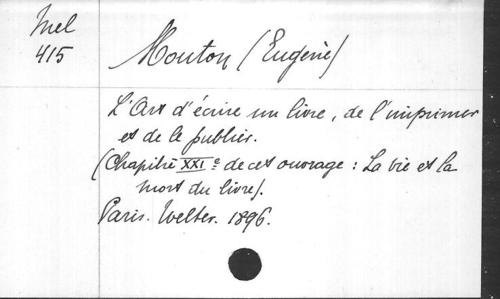 Mel
415
Mouton (Eugène)
L'Art d'écrire un livre, de l'imprimer
et de le publier.
(Chapitre XXIe de cet ouvrage : La vie et la
mort du livre).
Paris. Welter. 1896.